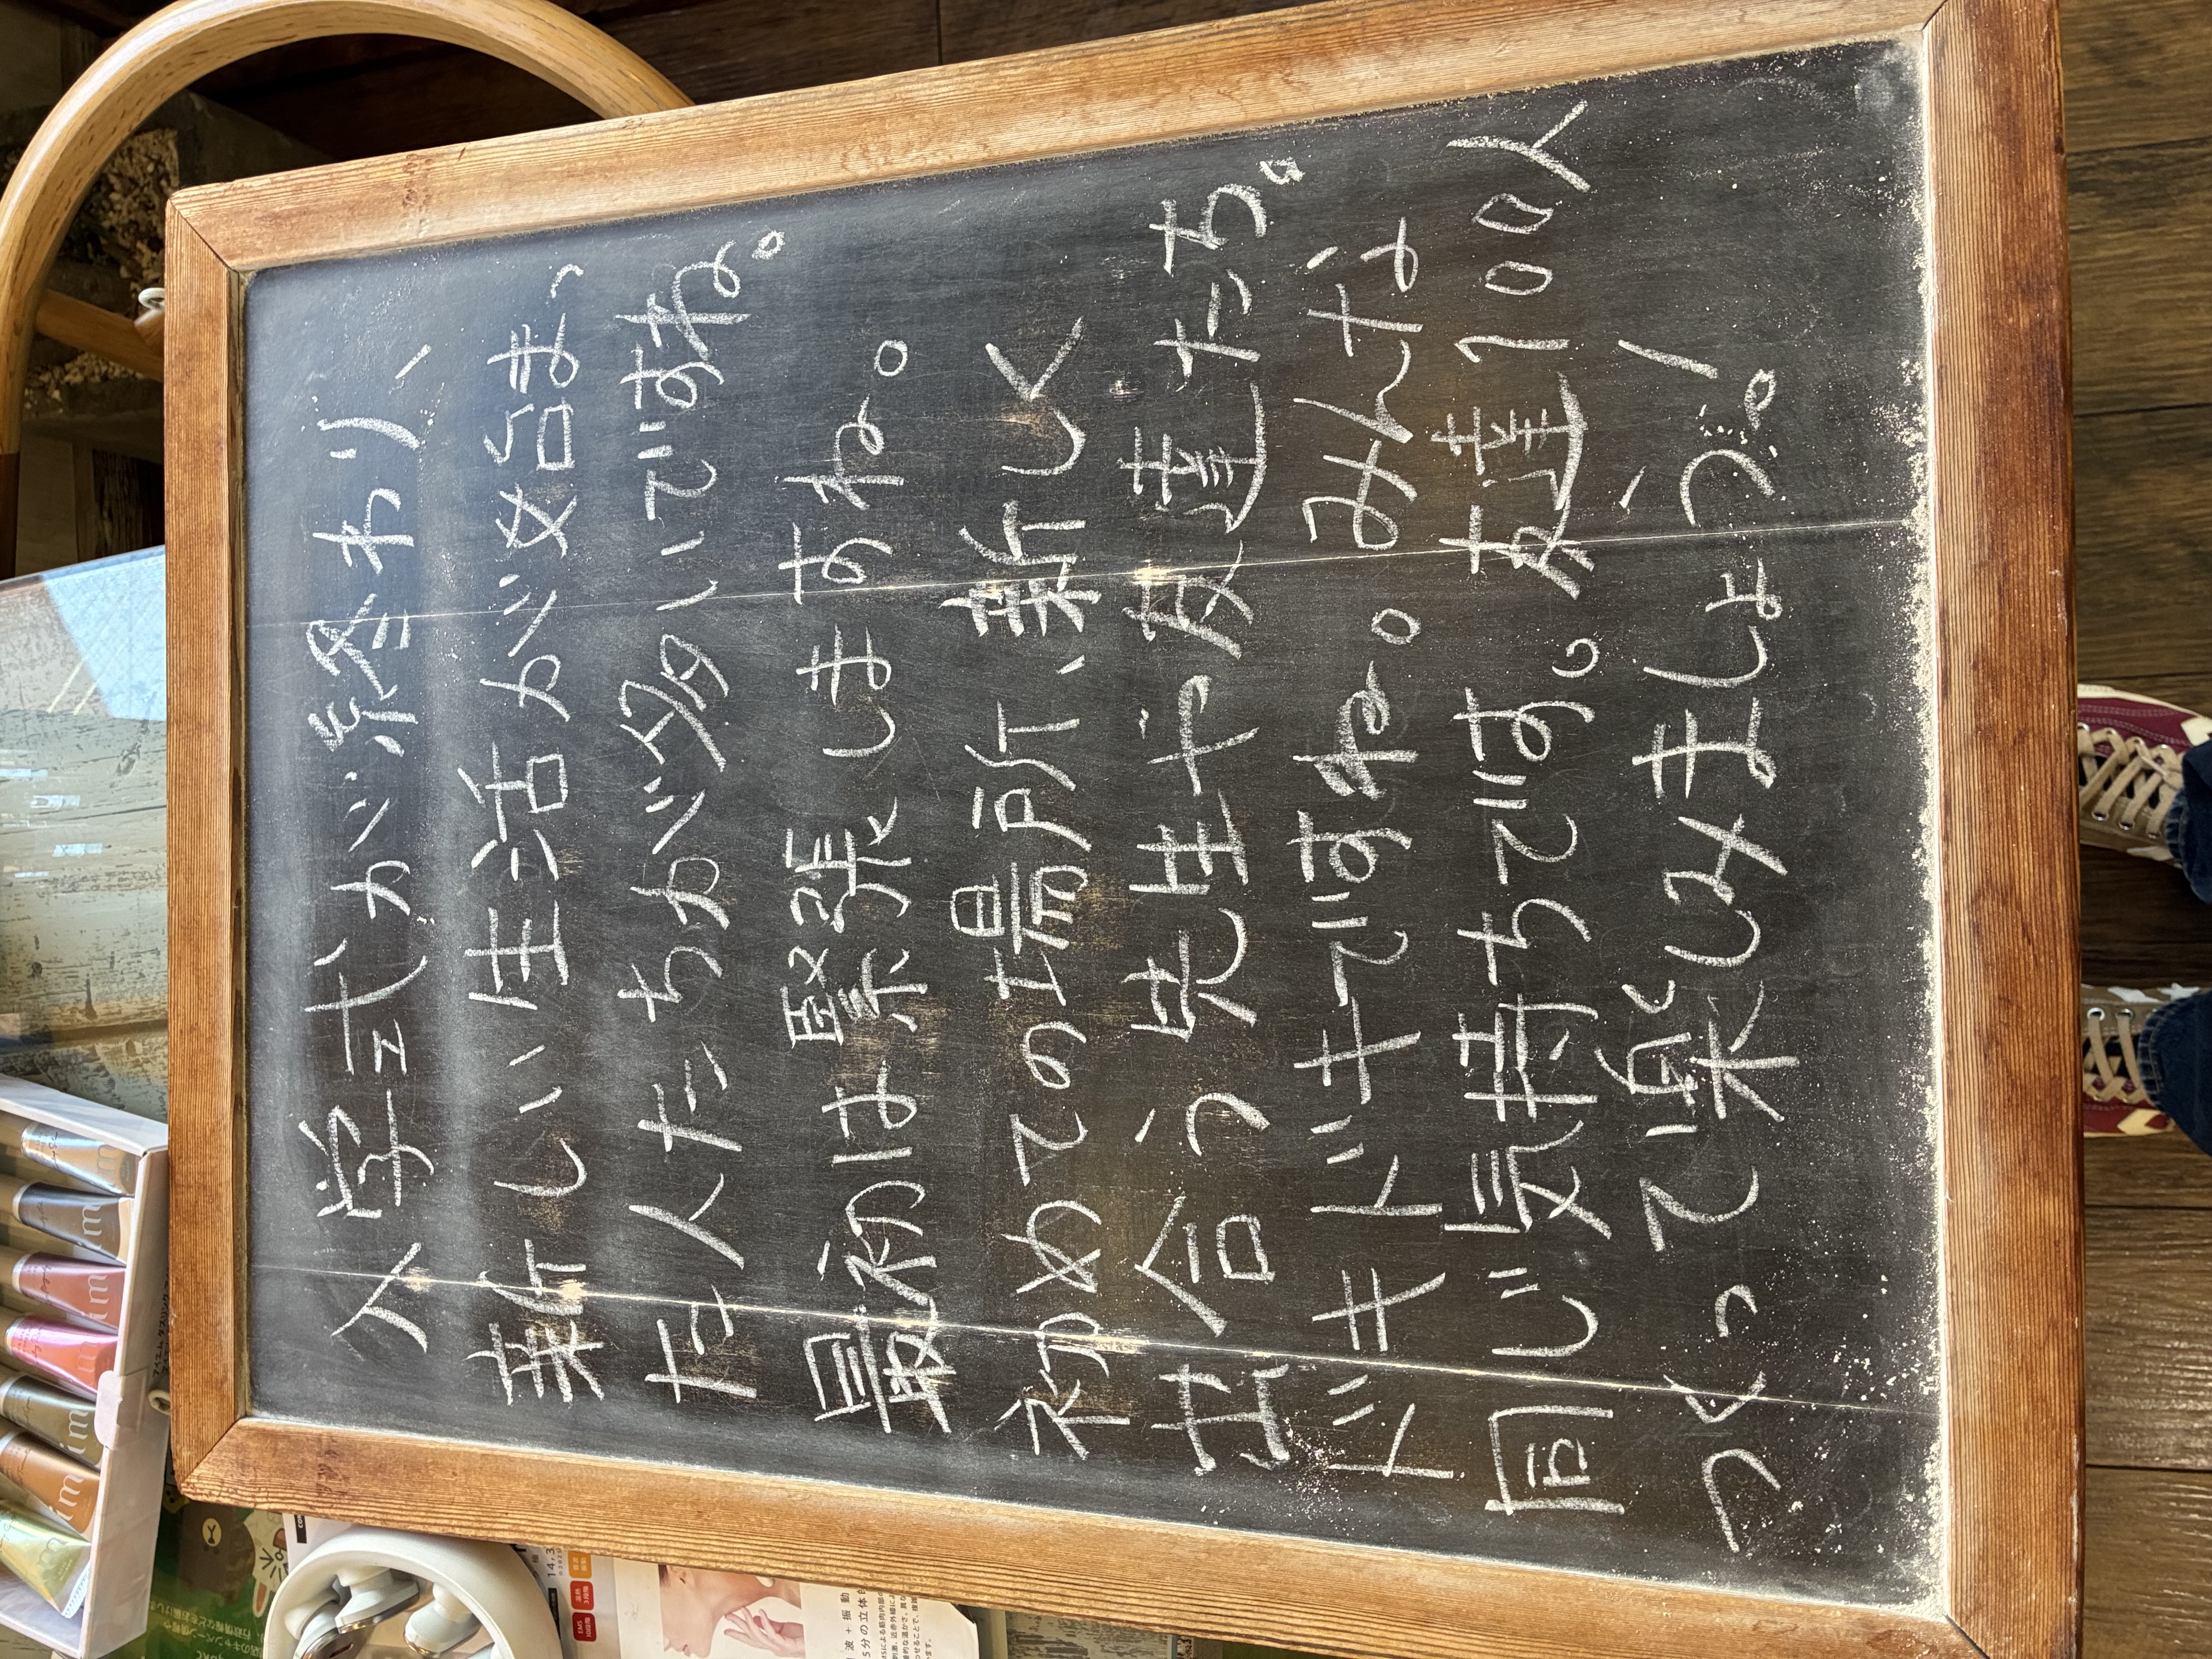 入学式が終わり、
新しい生活が始まっ
た人たちが多いですね。
最初は緊張しますね。
初めての場所、新しく
出会う先生や友達たち。
ドキドキですね。みんな
同じ気持ちです。友達100人
つくって楽しみましょう。!